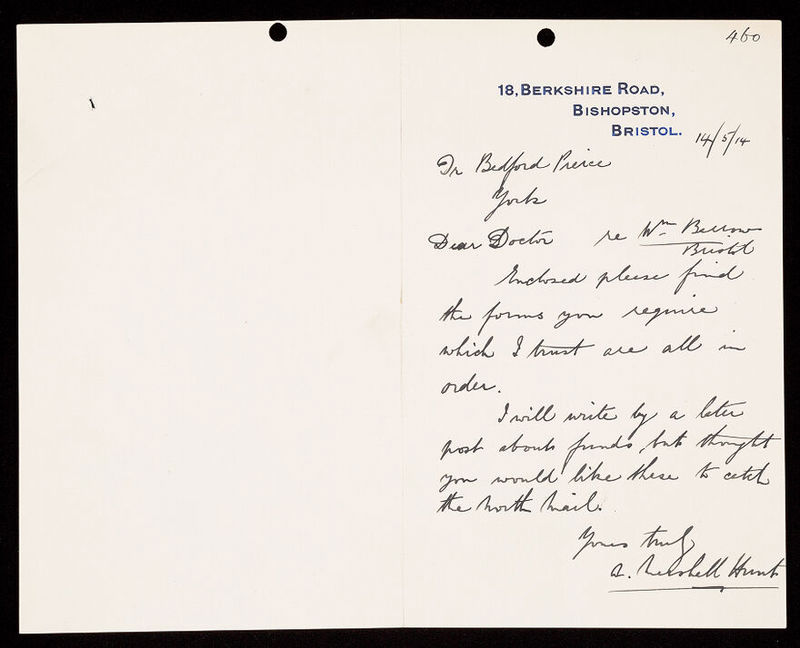 460
18, BERKSHIRE ROAD,
BISHOPSTON,
BRISTOL.
14/5/14
Dr Bedford Pierce
York
Dear Doctor re Wm
Bristol
Enclosed please find
the forms you require
which I trust are all in
order.
I will write by a later
post about funds, but thought
you would like these to catch
the North Mail.
Yours truly
A. Marshall Hunt